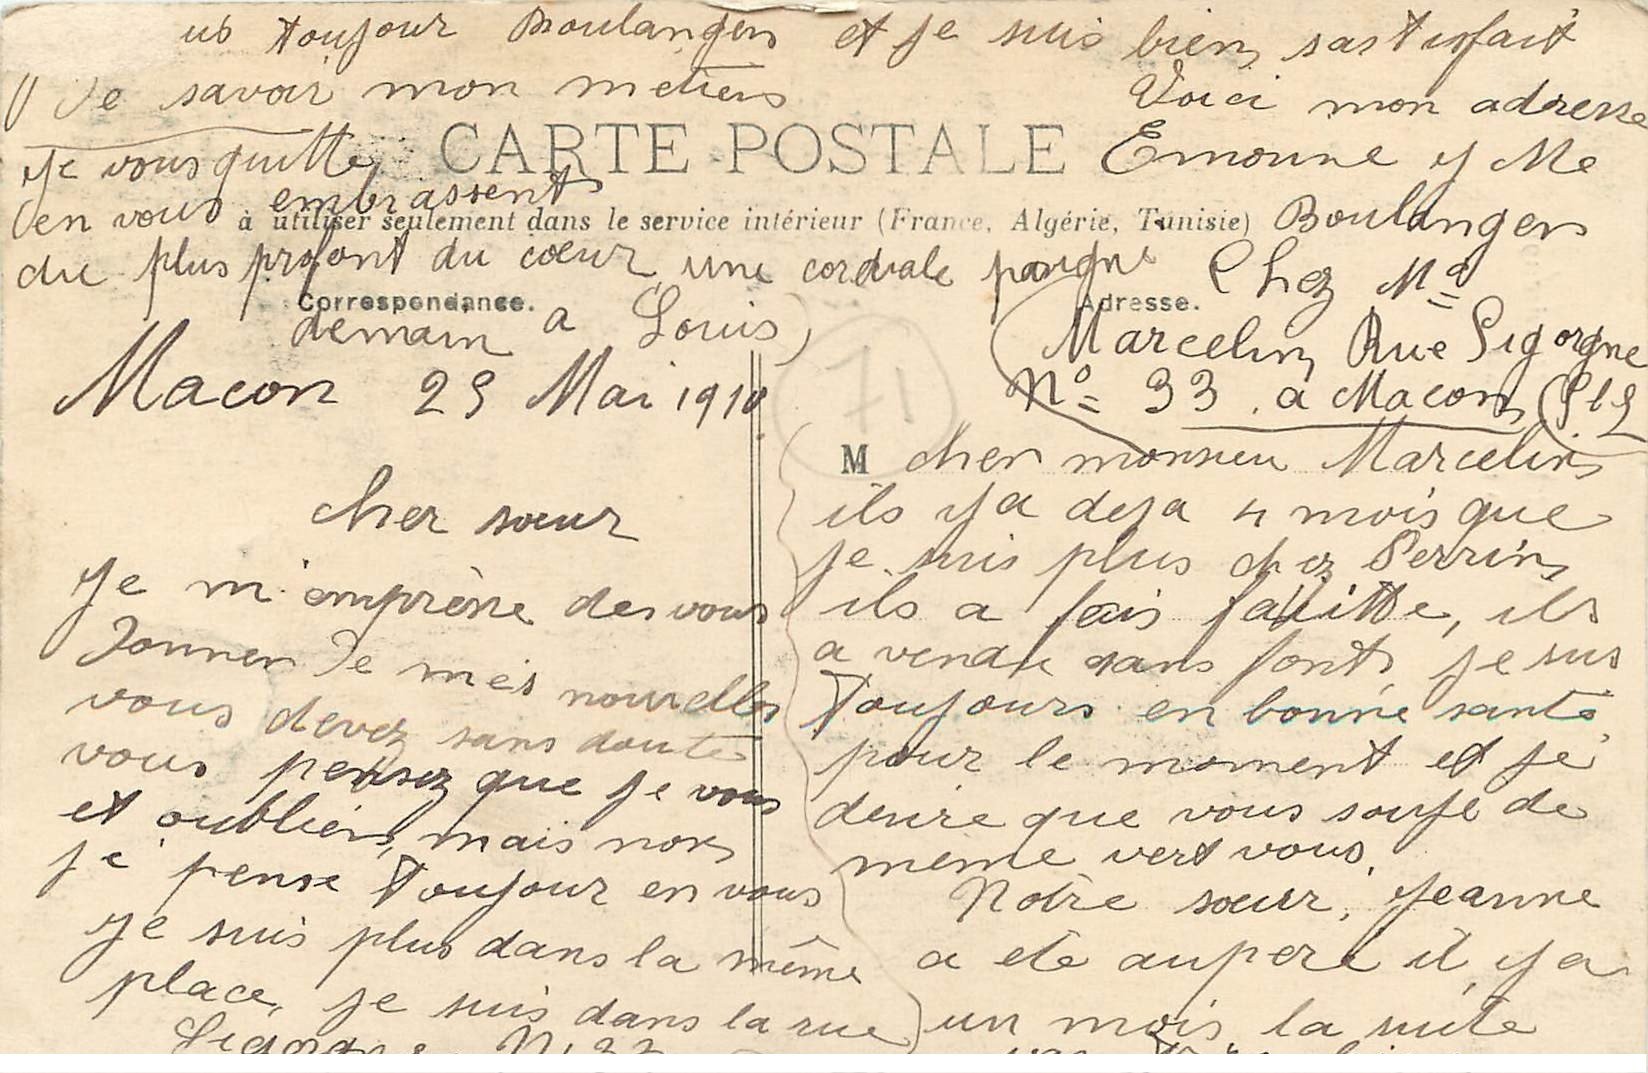 Macon 25 Mai 1910
cher sœur
Je m'emprène de vous
donner de mes nouvelles
vous devez sans doute
vous pensez que je vous
et oublier, mais non
je pense toujour en vous
Je suis plus dans la même
place, je suis dans la rue
Sigorgne N. 33
M cher monsieu Marcelin
ils y a deja 4 mois que
je suis plus chez Perrin
ils a fais faillitte, ils
a vendu sans font, je sus
toujours en bonne santé
pour le moment et je
desire que vous soufe de
meme vert vous.
Notre sœur, Jeanne
a eté opere il y a
un mois, la suite
us toujour Boulangers et je suis bien sastisfait
de savoir mon metiers
Je vous quitte
en vous embrassent
du plus profont du cœur une cordiale poigne
demain a Louis
Voici mon adresse
Emonne y Me
Boulangers
Chez Mr
Marcelin Rue Sigorgne
No 33 a Macon (S et L
CARTE POSTALE
à utiliser seulement dans le service intérieur (France, Algérie, Tunisie)
Correspondance.
Adresse.
71